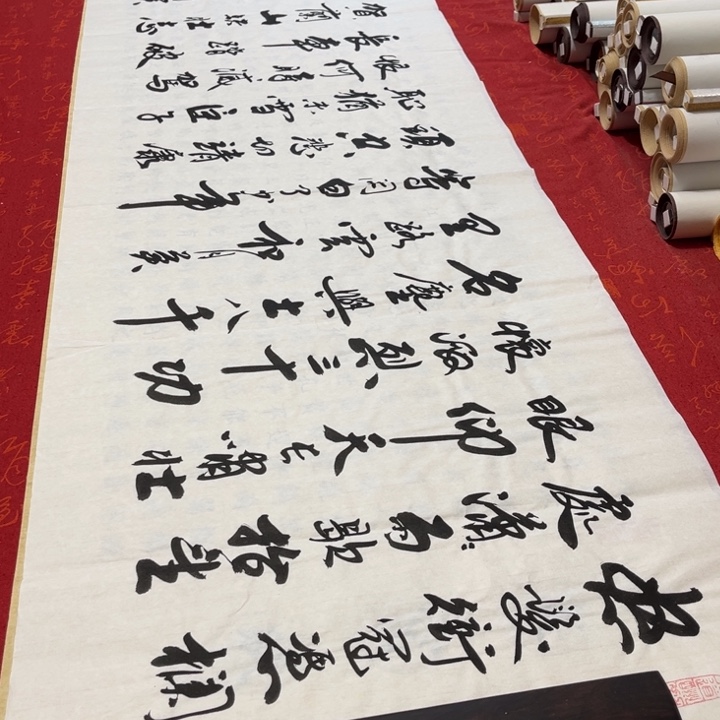 怒髮衝冠憑欄
處瀟々雨歇抬望
眼仰天長嘯壯
懷激烈三十功
名塵與土八千
里路雲和月莫
等閒白了少年
頭空悲切靖康
恥猶未雪臣子
恨何時滅駕
長車踏破
賀蘭山缺壯志